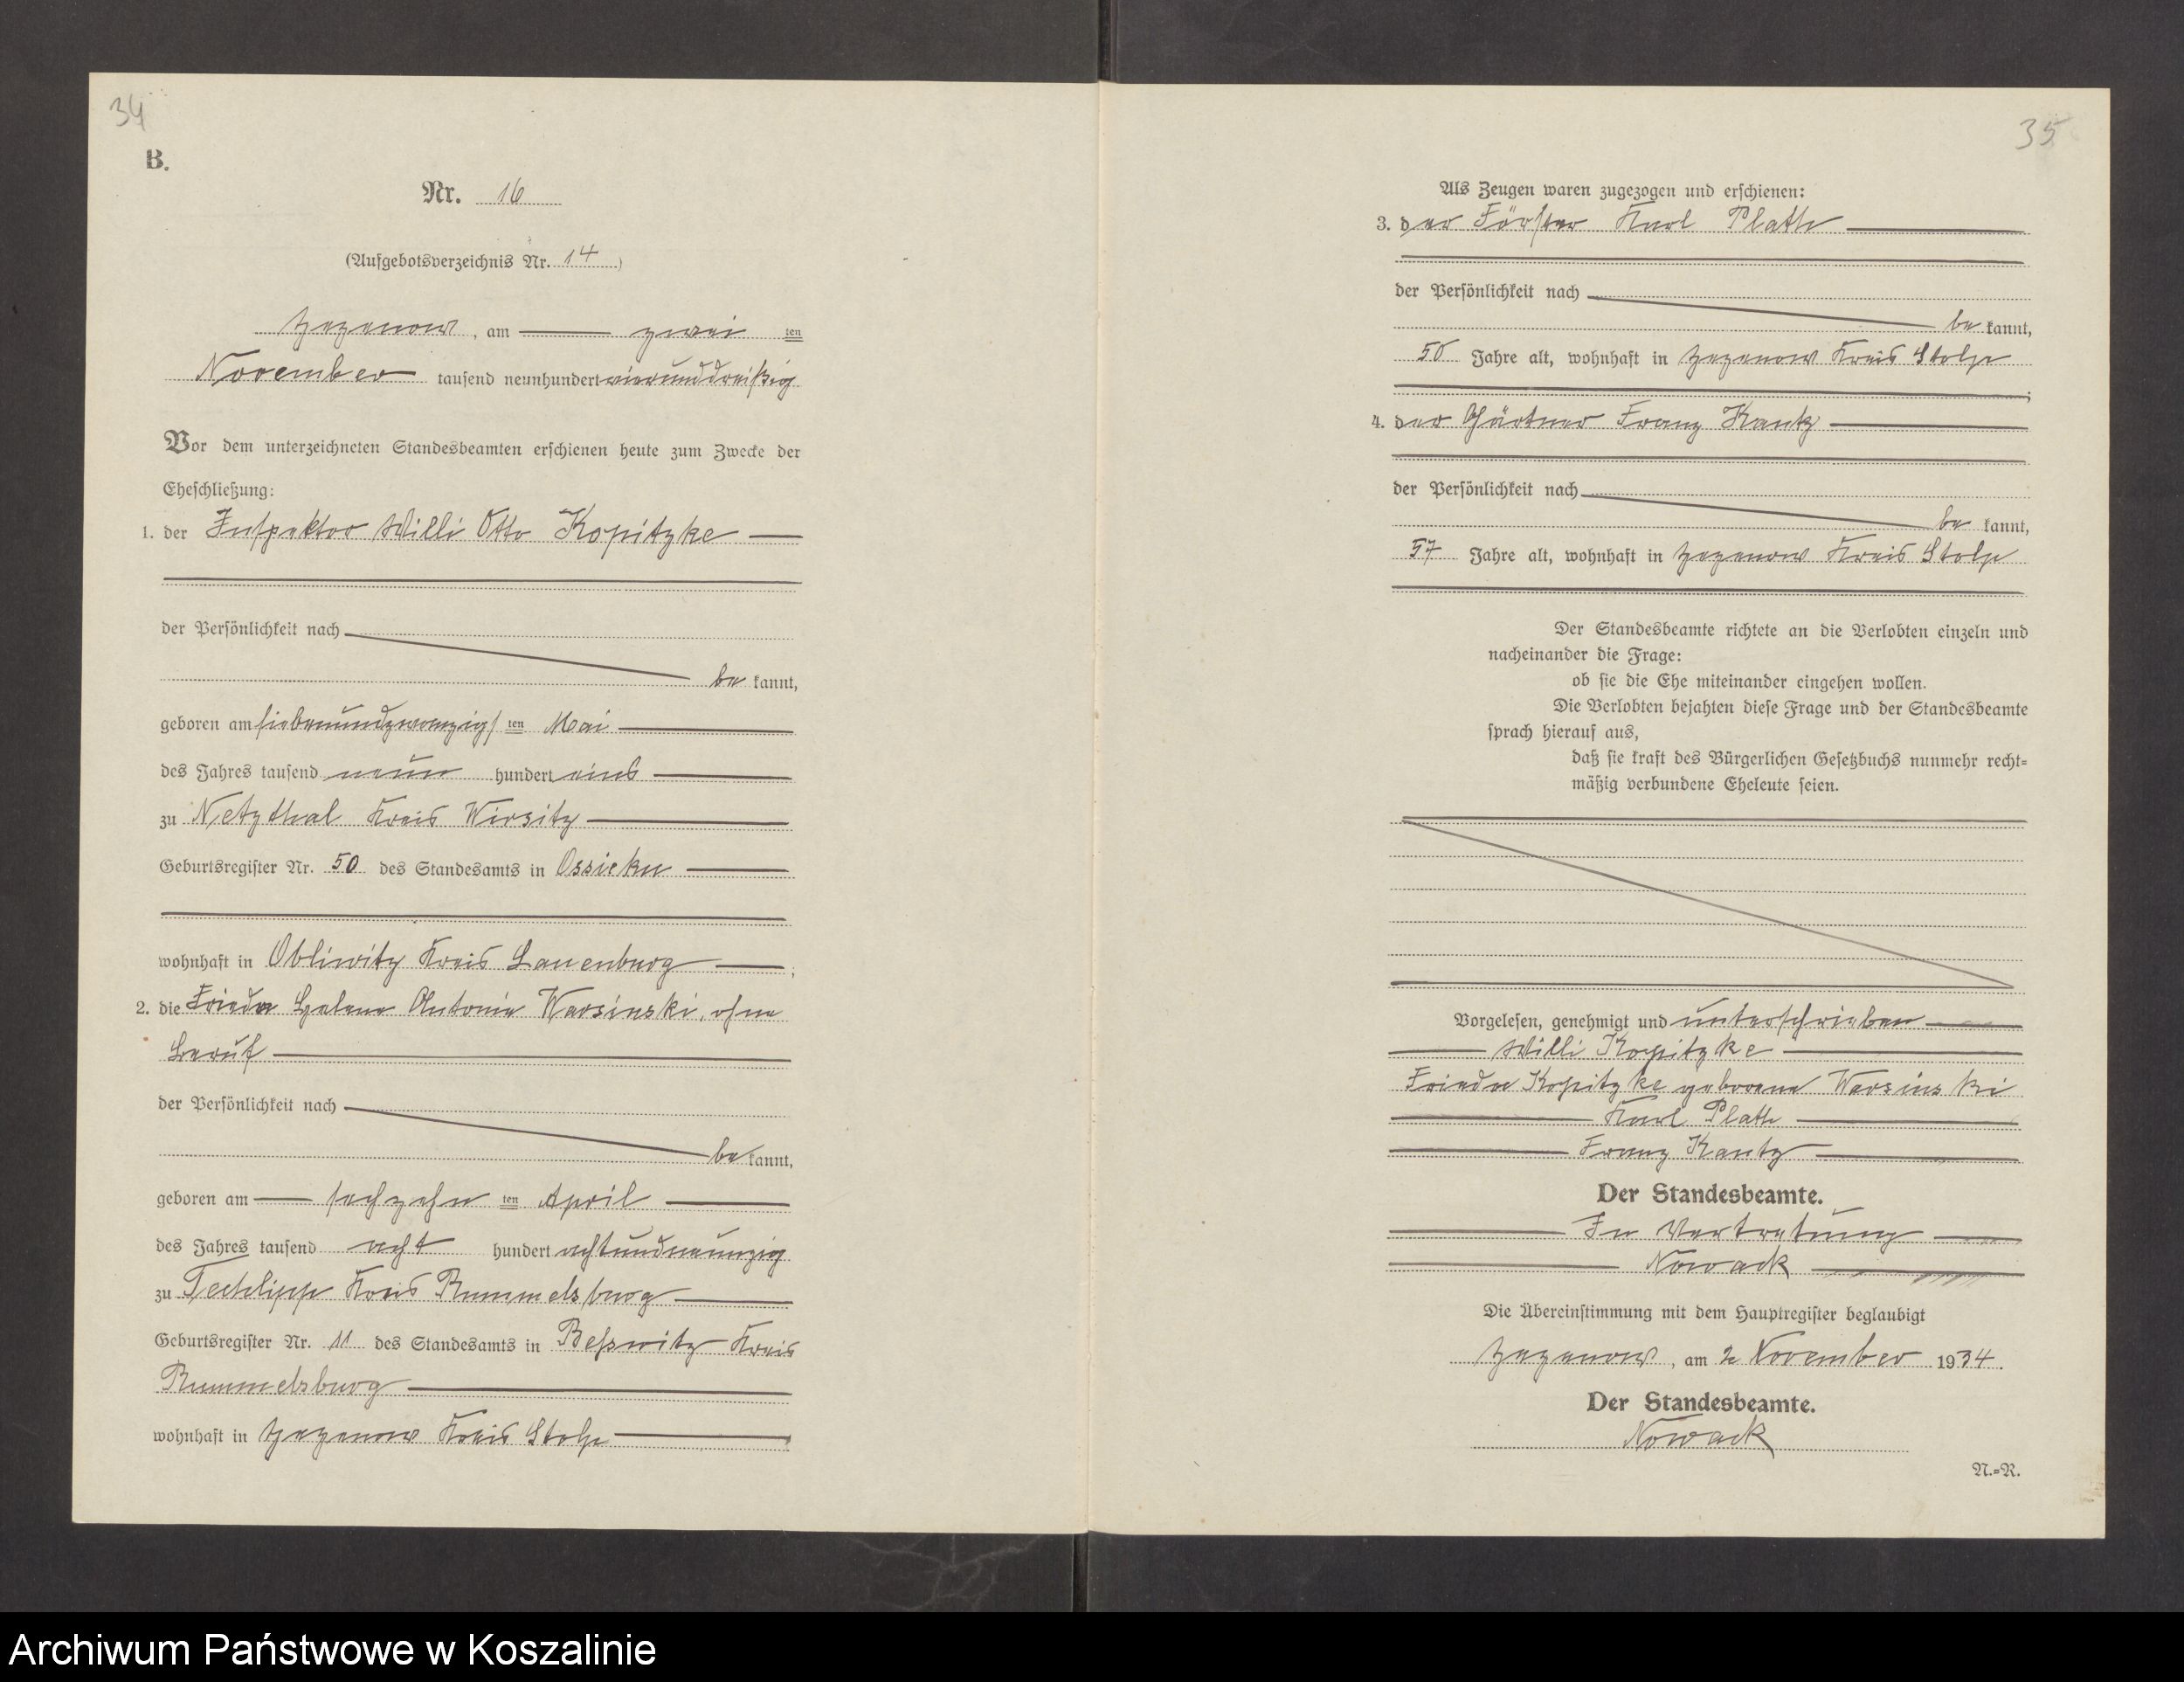 34
B.
Nr. 16
(Aufgebotsverzeichnis Nr. 14)
Zezenow, am zwei ten
November tausend neunhundert vierunddreißig
Vor dem unterzeichneten Standesbeamten erschienen heute zum Zwecke der
Eheschließung:
1. der Inspektor Willi Otto Kopitzke
der Persönlichkeit nach
be kannt,
geboren am siebenundzwanzigs ten Mai
des Jahres tausend neun hundert eins
zu Netzthal Kreis Wirsitz
Geburtsregister Nr. 50 des Standesamts in Ossiek
wohnhaft in Obliwitz Kreis Lauenburg ;
2. die Frieda Helene Antonie Warsinski, ohne
Beruf
der Persönlichkeit nach
be kannt,
geboren am sechzehn ten April
des Jahres tausend acht hundert achtundneunzig
zu Techlipp Kreis Rummelsburg
Geburtsregister Nr. 11 des Standesamts in Beßwitz Kreis
Rummelsburg
wohnhaft in Zezenow Kreis Stolp
35
Als Zeugen waren zugezogen und erschienen:
3. der Förster Karl Plath
der Persönlichkeit nach
be kannt,
50 Jahre alt, wohnhaft in Zezenow Kreis Stolp
;
4. der Gärtner Franz Kautz
der Persönlichkeit nach
be kannt,
57 Jahre alt, wohnhaft in Zezenow Kreis Stolp
Der Standesbeamte richtete an die Verlobten einzeln und
nacheinander die Frage:
ob sie die Ehe miteinander eingehen wollen.
Die Verlobten bejahten diese Frage und der Standesbeamte
sprach hierauf aus,
daß sie kraft des Bürgerlichen Gesetzbuchs nunmehr recht=
mäßig verbundene Eheleute seien.
Vorgelesen, genehmigt und unterschrieben
Willi Kopitzke
Frieda Kopitzke geborene Warsinski
Karl Plath
Franz Kautz
Der Standesbeamte.
In Vertretung
Nowack
Die Übereinstimmung mit dem Hauptregister beglaubigt
Zezenow, am 2 November 1934.
Der Standesbeamte.
Nowack
N.=R.
Archiwum Państwowe w Koszalinie